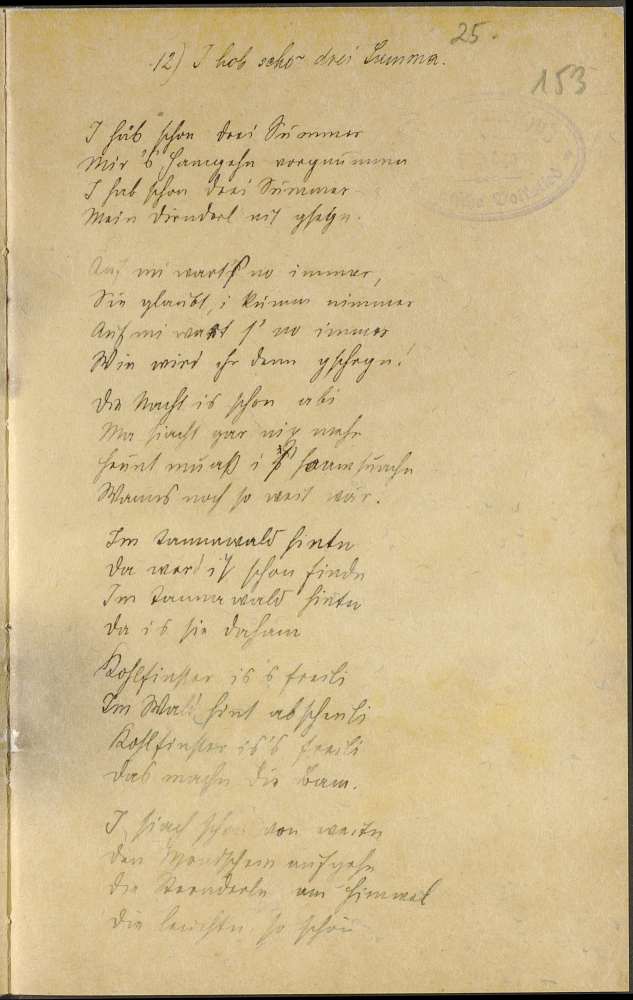 25.
153
12) I hob scho drei Summa.
I hab schon drei Summer
Mir 's Hamgehn vorgnumma
I hab schon drei Summer
Mein Dirnderl nit gsehgn.
Auf mi wart s' no immer,
Sie glaubt, i kumm nimmer
Auf mi wart s' no immer
Wie wird ihr denn gschegn!
Die Nacht is schon abi
Ma siacht gar nix mehr
Heunt muaß i s' haamsuachn
Wanns noch so weit wär.
Im Tannawald hintn
Da werd i s' schon findn
Im Tannawald hintn
Da is sie daham
Kohlfinster is's freili
Im Wald hint abscheuli
Kohlfinster is's freili
Das machn die Bam.
I siach schon von weitn
Den Mondschein aufgehn
Die Sternderln am Himmel
Die leuchtn so schön